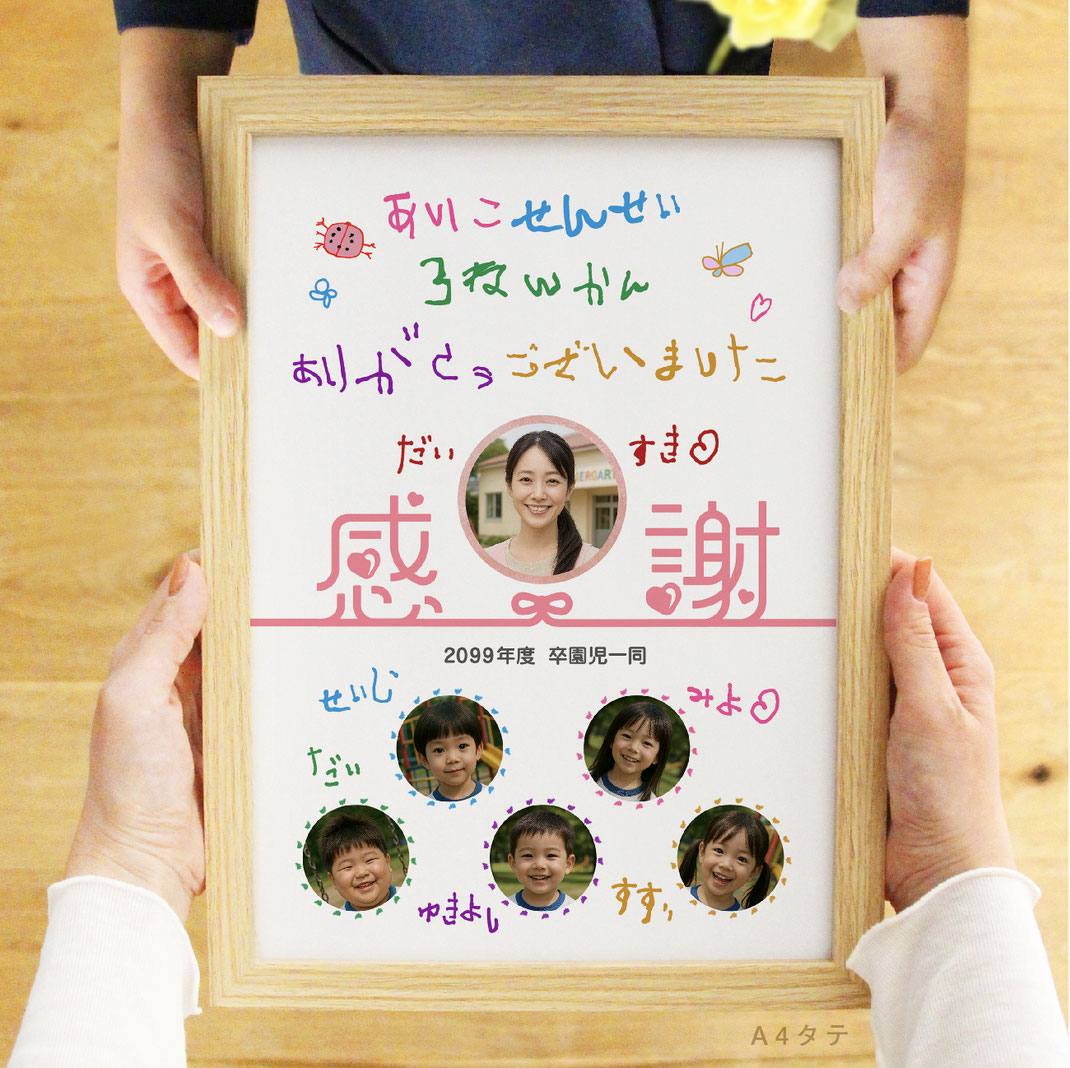 ありこせんせい
3ねんかん
ありがとうございました
だい すき
感謝
ERGART
2099年度 卒園児一同
せいじ
みよ
だい
ゆきよし
A4タテ